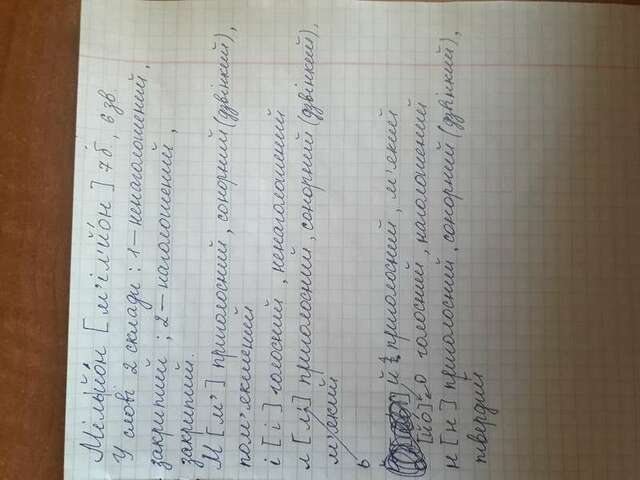 Мільйо́н [м'іл'йо́н] 7б, 6зв
У слові 2 склади: 1–ненаголошений,
закритий; 2–наголошений,
закритий.
М [м'] приголосний, сонорний (дзвінкий),
пом'якшений
і [і] голосний, ненаголошений
л [л'] приголосний, сонорний (дзвінкий),
м'який
ь
й приголосний, м'який
[йо] о голосний, наголошений
н [н] приголосний, сонорний (дзвінкий),
твердий